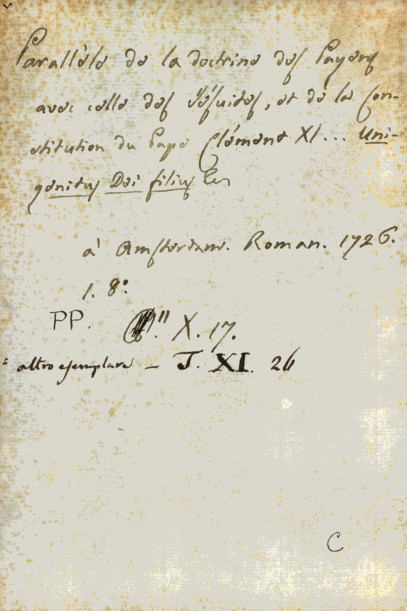 Parallèle de la doctrine des Payens
avec celle des Jésuites, et de la Con-
stitution du Pape Clément XI... Uni-
genitus Dei filius
à Amsterdam. Roman. 1726.
1. 8°.
PP. X. 17.
= altro esemplare - J. XI. 26
C